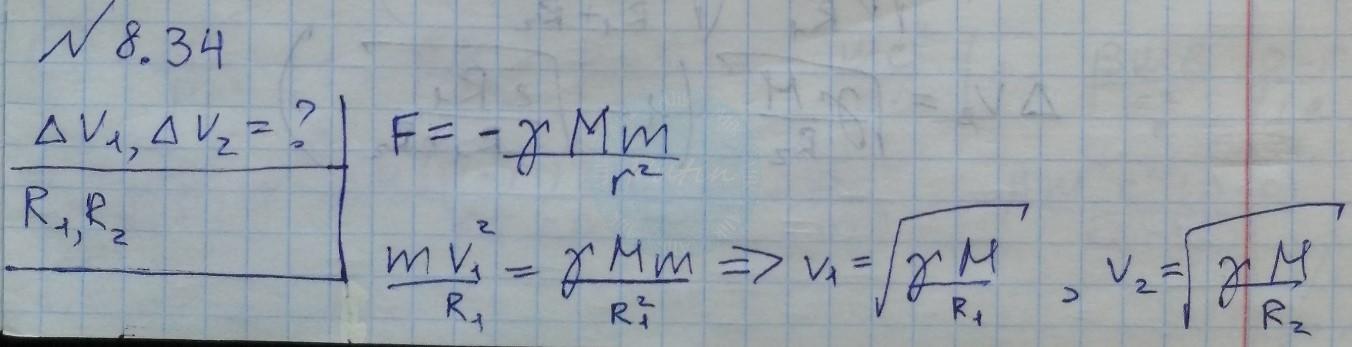 № 8.34
ΔV₁, ΔV₂ = ?
R₁, R₂
F = - γMm / r²
mV₁² / R₁ = γMm / R₁² ⇒ V₁ = √(γM / R₁) , V₂ = √(γM / R₂)